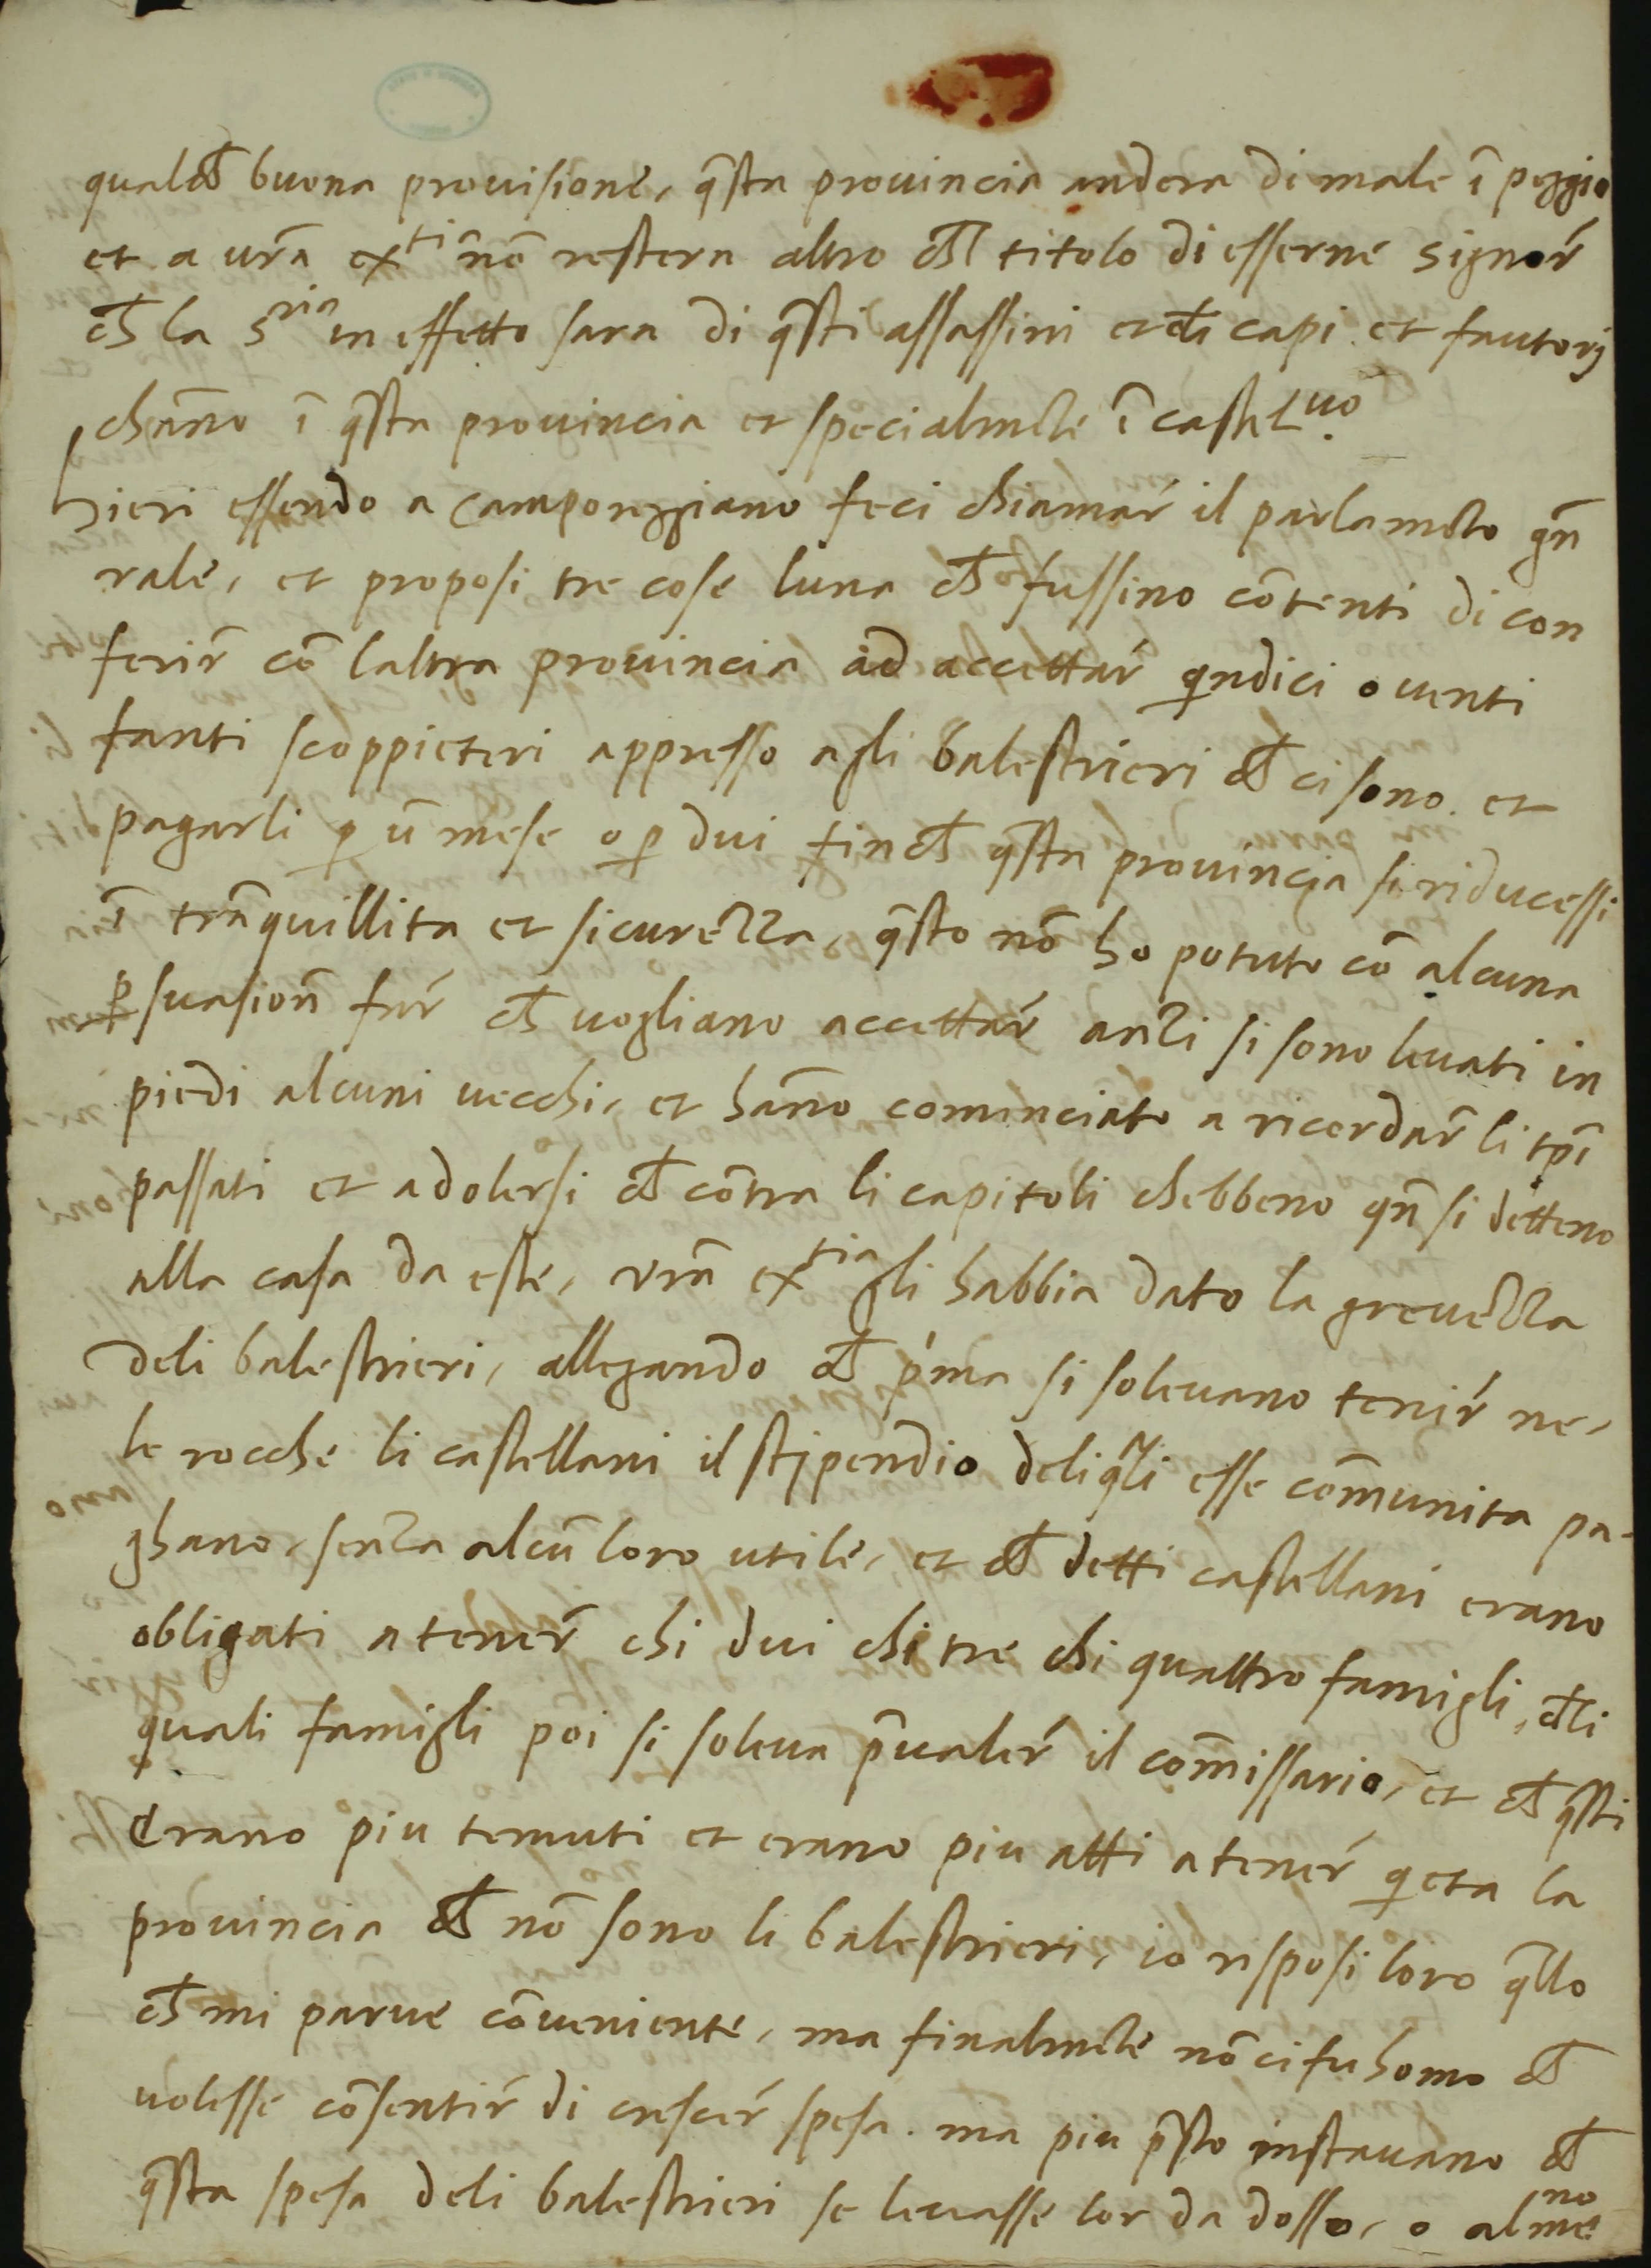 qualch̄ buona prouisione, q̄sta prouincia andera di male ī peggio
et a vrā exti nō restera altro ch̄l titolo di esserne signor̄
ch̄ la Sria in effetto sara di q̄sti assassini et di capi et fautorj
chāno ī q̄sta prouincia et specialmēte ī castelnuo.
Hieri essendo a camporeggiano feci chiamar̄ il parlamēto gn̄
rale, et proposi tre cose luna ch̄ fussino cōtenti di con
ferir̄ cō laltra prouincia ad accettar̄ qindici o uenti
fanti scoppietteri appresso agli balestrieri ch̄ ci sono. et
pagarli ꝑ ū mese o ꝑ dui finch̄ q̄sta prouincia si riducessi
ī trāquillita et sicurezza, q̄sto nō ho potuto cō alcuna
ꝑsuasion̄ far̄ ch̄ uogliano accettar̄ anzi si sono leuati in
piedi alcuni uecchi, et hāno cominciato a ricordar̄ li tp̄i
passati et a dolersi ch̄ cōtra li capitoli chebbeno qn̄ si detteno
alla casa da este, vrā extia gli habbia dato la grevezza
deli balestrieri, allegando ch̄ p'ma si soleuano tenir̄ ne,
le rocche li castellani il stjpendio deliq̄li esse cōmunita pa-
ghano, senza alcū loro utile, et ch̄ detti castellani erano
obligati a tener̄ chi dui chi tre chi quattro famigli, deli
quali famigli poi si soleua p̄ualer̄ il cōmissario, et ch̄ q̄sti
Erano piu temuti et erano piu atti a tener̄ qieta la
prouincia ch̄ nō sono li balestrieri, io risposi loro q̄llo
ch̄ mi parue cōueniente, ma finalmēte nō ci fu homo ch̄
uolesse cōsentir̄ di crescer̄ spesa. ma piu p̄sto instauano ch̄
q̄sta spesa deli balestrieri se leuasse lor da dosso, o almeno